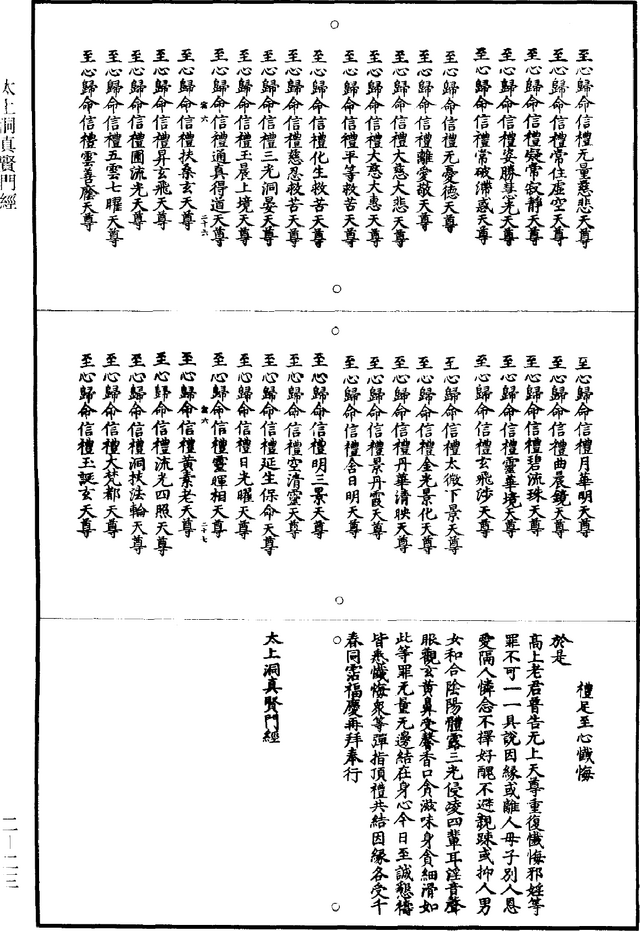 太上洞真賢門經
至心歸命信禮无量慈悲天尊
至心歸命信禮常住虛空天尊
至心歸命信禮凝常寂靜天尊
至心歸命信禮姿勝慧光天尊
至心歸命信禮常破滯惑天尊
至心歸命信禮无憂德天尊
至心歸命信禮離愛敬天尊
至心歸命信禮大慈大悲天尊
至心歸命信禮大慈大惠天尊
至心歸命信禮平等救苦天尊
至心歸命信禮化生救苦天尊
至心歸命信禮慈忍救苦天尊
至心歸命信禮三光洞晏天尊
至心歸命信禮玉晨上境天尊
至心歸命信禮通真得道天尊
六 二十六
至心歸命信禮扶桑玄天尊
至心歸命信禮昇玄飛天尊
至心歸命信禮圓流光天尊
至心歸命信禮五雲七曜天尊
至心歸命信禮雲善蔭天尊
至心歸命信禮月華明天尊
至心歸命信禮曲晨鏡天尊
至心歸命信禮碧流珠天尊
至心歸命信禮靈華境天尊
至心歸命信禮玄飛涉天尊
至心歸命信禮太微下景天尊
至心歸命信禮金光景化天尊
至心歸命信禮丹華清映天尊
至心歸命信禮景丹霞天尊
至心歸命信禮含日明天尊
至心歸命信禮明三景天尊
至心歸命信禮空清靈天尊
至心歸命信禮延生保命天尊
至心歸命信禮日光曜天尊
至心歸命信禮靈暉相天尊
六 二十七
至心歸命信禮黃素老天尊
至心歸命信禮流光四照天尊
至心歸命信禮洞扶法輪天尊
至心歸命信禮大梵都天尊
至心歸命信禮玉誕玄天尊
禮足至心懺悔
於是
高上老君普告无上天尊重復懺悔邪婬等
罪不可一一具說因緣或離人母子別人恩
愛隔人憐念不擇好醜不避親踈或抑人男
女和合陰陽體露三光侵凌四輩耳淫音聲
眼觀玄黃鼻受馨香口貪滋味身貪細滑如
此等罪无量无邊結在身心今日至誠懇禱
皆悉懺悔衆等彈指頂禮共結因緣各受千
春同霑福慶再拜奉行
太上洞真賢門經
二—二三